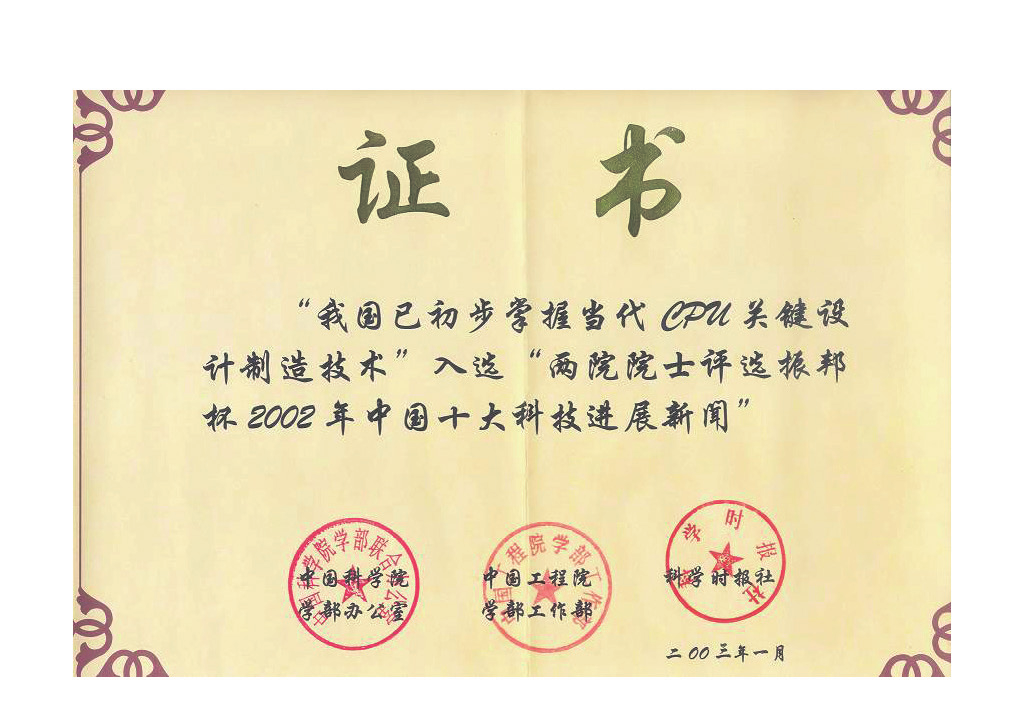 证书
“我国已初步掌握当代CPU关键设
计制造技术”入选“两院院士评选振邦
杯2002年中国十大科技进展新闻”
中国科学院
学部办公室
中国工程院
学部工作部
科学时报社
二00三年一月
中国科学院学部联合办公室
中国工程院学部工作部
科学时报社